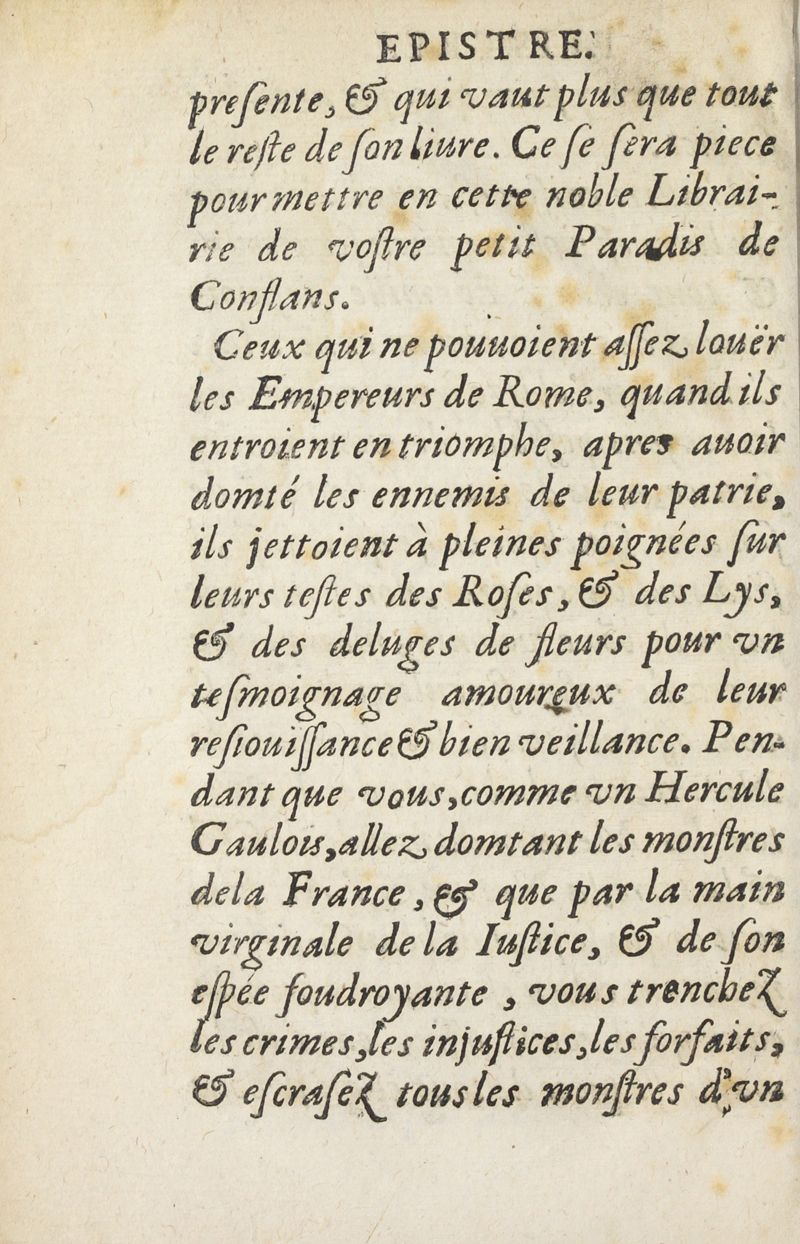 EPISTRE.
preſente, & qui vaut plus que tout
le reſte de ſon liure. Ce ſe ſera piece
pour mettre en cette noble Librai-
rie de voſtre petit Paradis de
Conflans.
Ceux qui ne pouuoient aſſez louër
les Empereurs de Rome, quand ils
entroient en triomphe, apres auoir
domté les ennemis de leur patrie,
ils jettoient à pleines poignées ſur
leurs teſtes des Roſes, & des Lys,
& des deluges de fleurs pour vn
teſmoignage amoureux de leur
reſiouiſſance & bien veillance. Pen-
dant que vous, comme vn Hercule
Gaulois, allez domtant les monſtres
dela France, & que par la main
virginale de la Iuſtice, & de ſon
eſpée foudroyante , vous trenchez
les crimes, les injuſtices, les forfaits,
& eſcraſez tous les monſtres d'vn